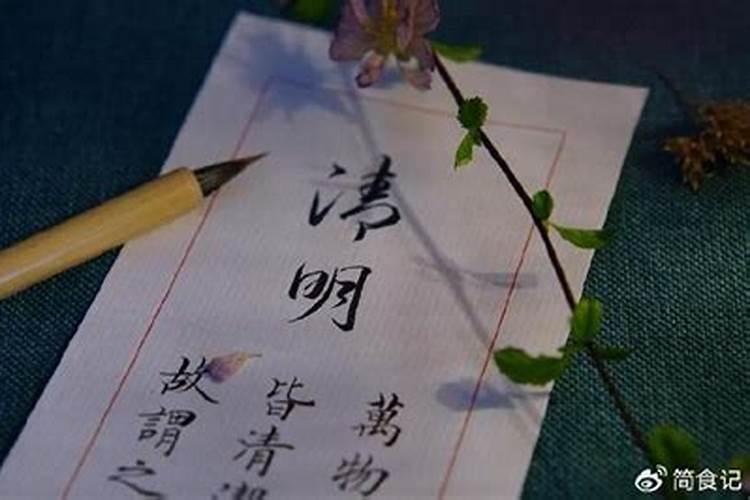 清明
萬物
皆清潔
故謂之
简食记